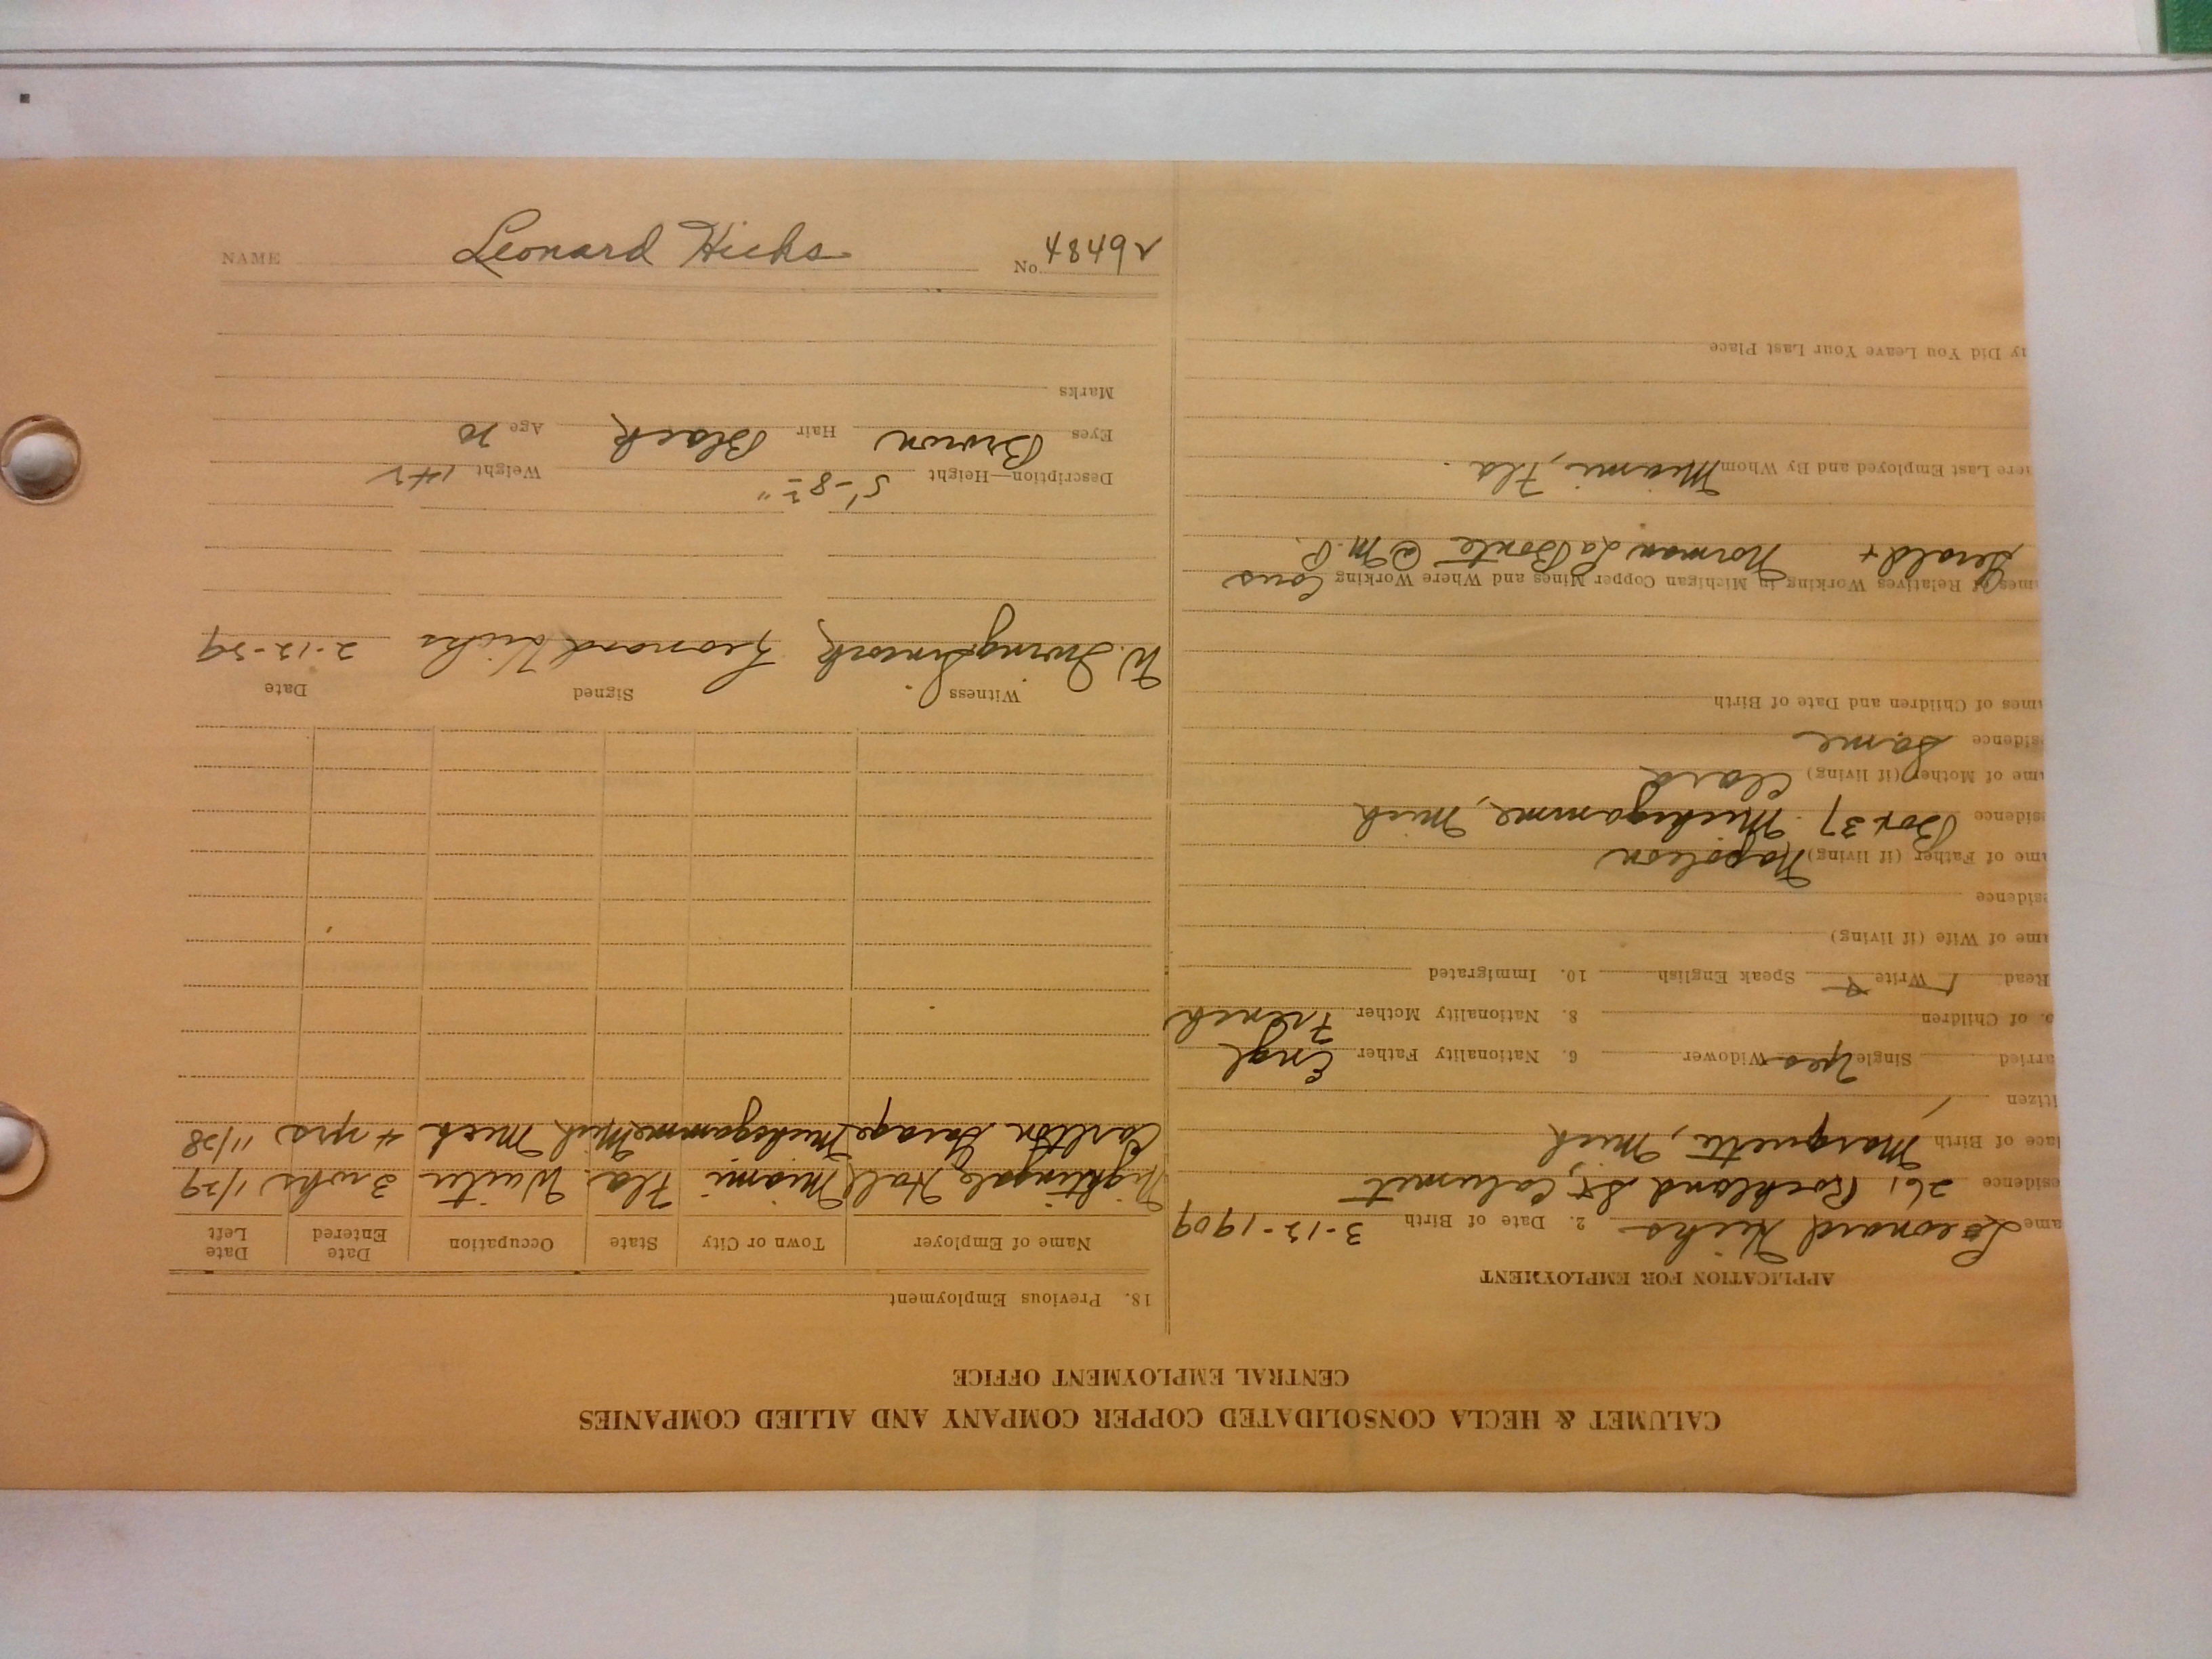 CALUMET & HECLA CONSOLIDATED COPPER COMPANY AND ALLIED COMPANIES
CENTRAL EMPLOYMENT OFFICE
APPLICATION FOR EMPLOYMENT
ame Leonard Hicks 2. Date of Birth 3-12-1909
esidence 261 Rockland St, Calumet
lace of Birth Marquette, Mich
itizen
arried Single yes Widower 6. Nationality Father Engl
o. of Children 8. Nationality Mother French
Read Write Speak English 10. Immigrated
ame of Wife (if living)
esidence
ame of Father (if living) Napoleon
esidence Box 37 Michigamme, Mich
ame of Mother (if living) Clara
esidence Same
ames of Children and Date of Birth
ames of Relatives Working in Michigan Copper Mines and Where Working Cous
Gerald + Norman LaBonte @ M.P.
here Last Employed and By Whom Miami, Fla.
hy Did You Leave Your Last Place
18. Previous Employment
Name of Employer Town or City State Occupation Date Entered Date Left
Nightingale Hall Miami Fla. Waiter 3 wks 1/29
Carlton Garage Michigamme Mich Mech 4 yrs 11/28
Witness Signed Date
W. Irving Leonard Hicks 2-12-29
Description—Height 5'-8½" Weight 142
Eyes Brown Hair Black Age 20
Marks
NAME Leonard Hicks No. 48492